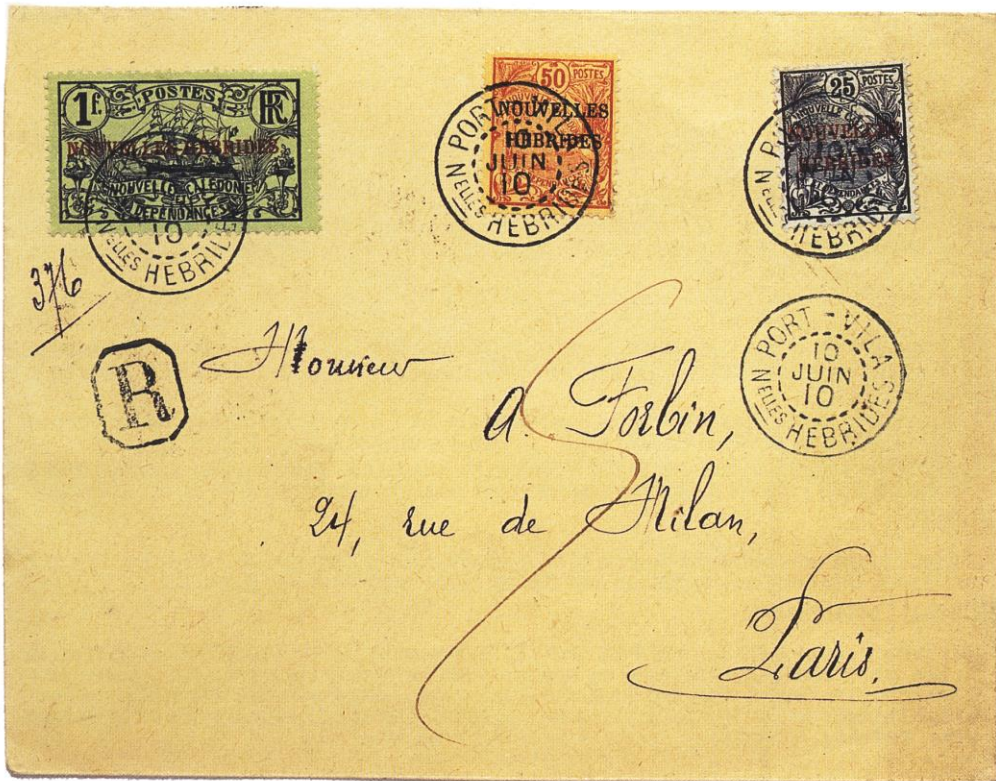 1f. POSTES RF
NOUVELLES HEBRIDES
NOUVELLE CALEDONIE
ET DEPENDANCES
10
NELLES HEBRIDES
50 POSTES
NOUVELLES
HEBRIDES
PORT - VILA
10
JUIN
10
NELLES HEBRIDES
25 POSTES
NOUVELLE CALEDONIE
NOUVELLES
HEBRIDES
DEPENDANCES
NELLES HEBRIDES
376
R
PORT - VILA
10
JUIN
10
NELLES HEBRIDES
Monsieur
A. Forbin,
24, rue de Milan,
Paris.